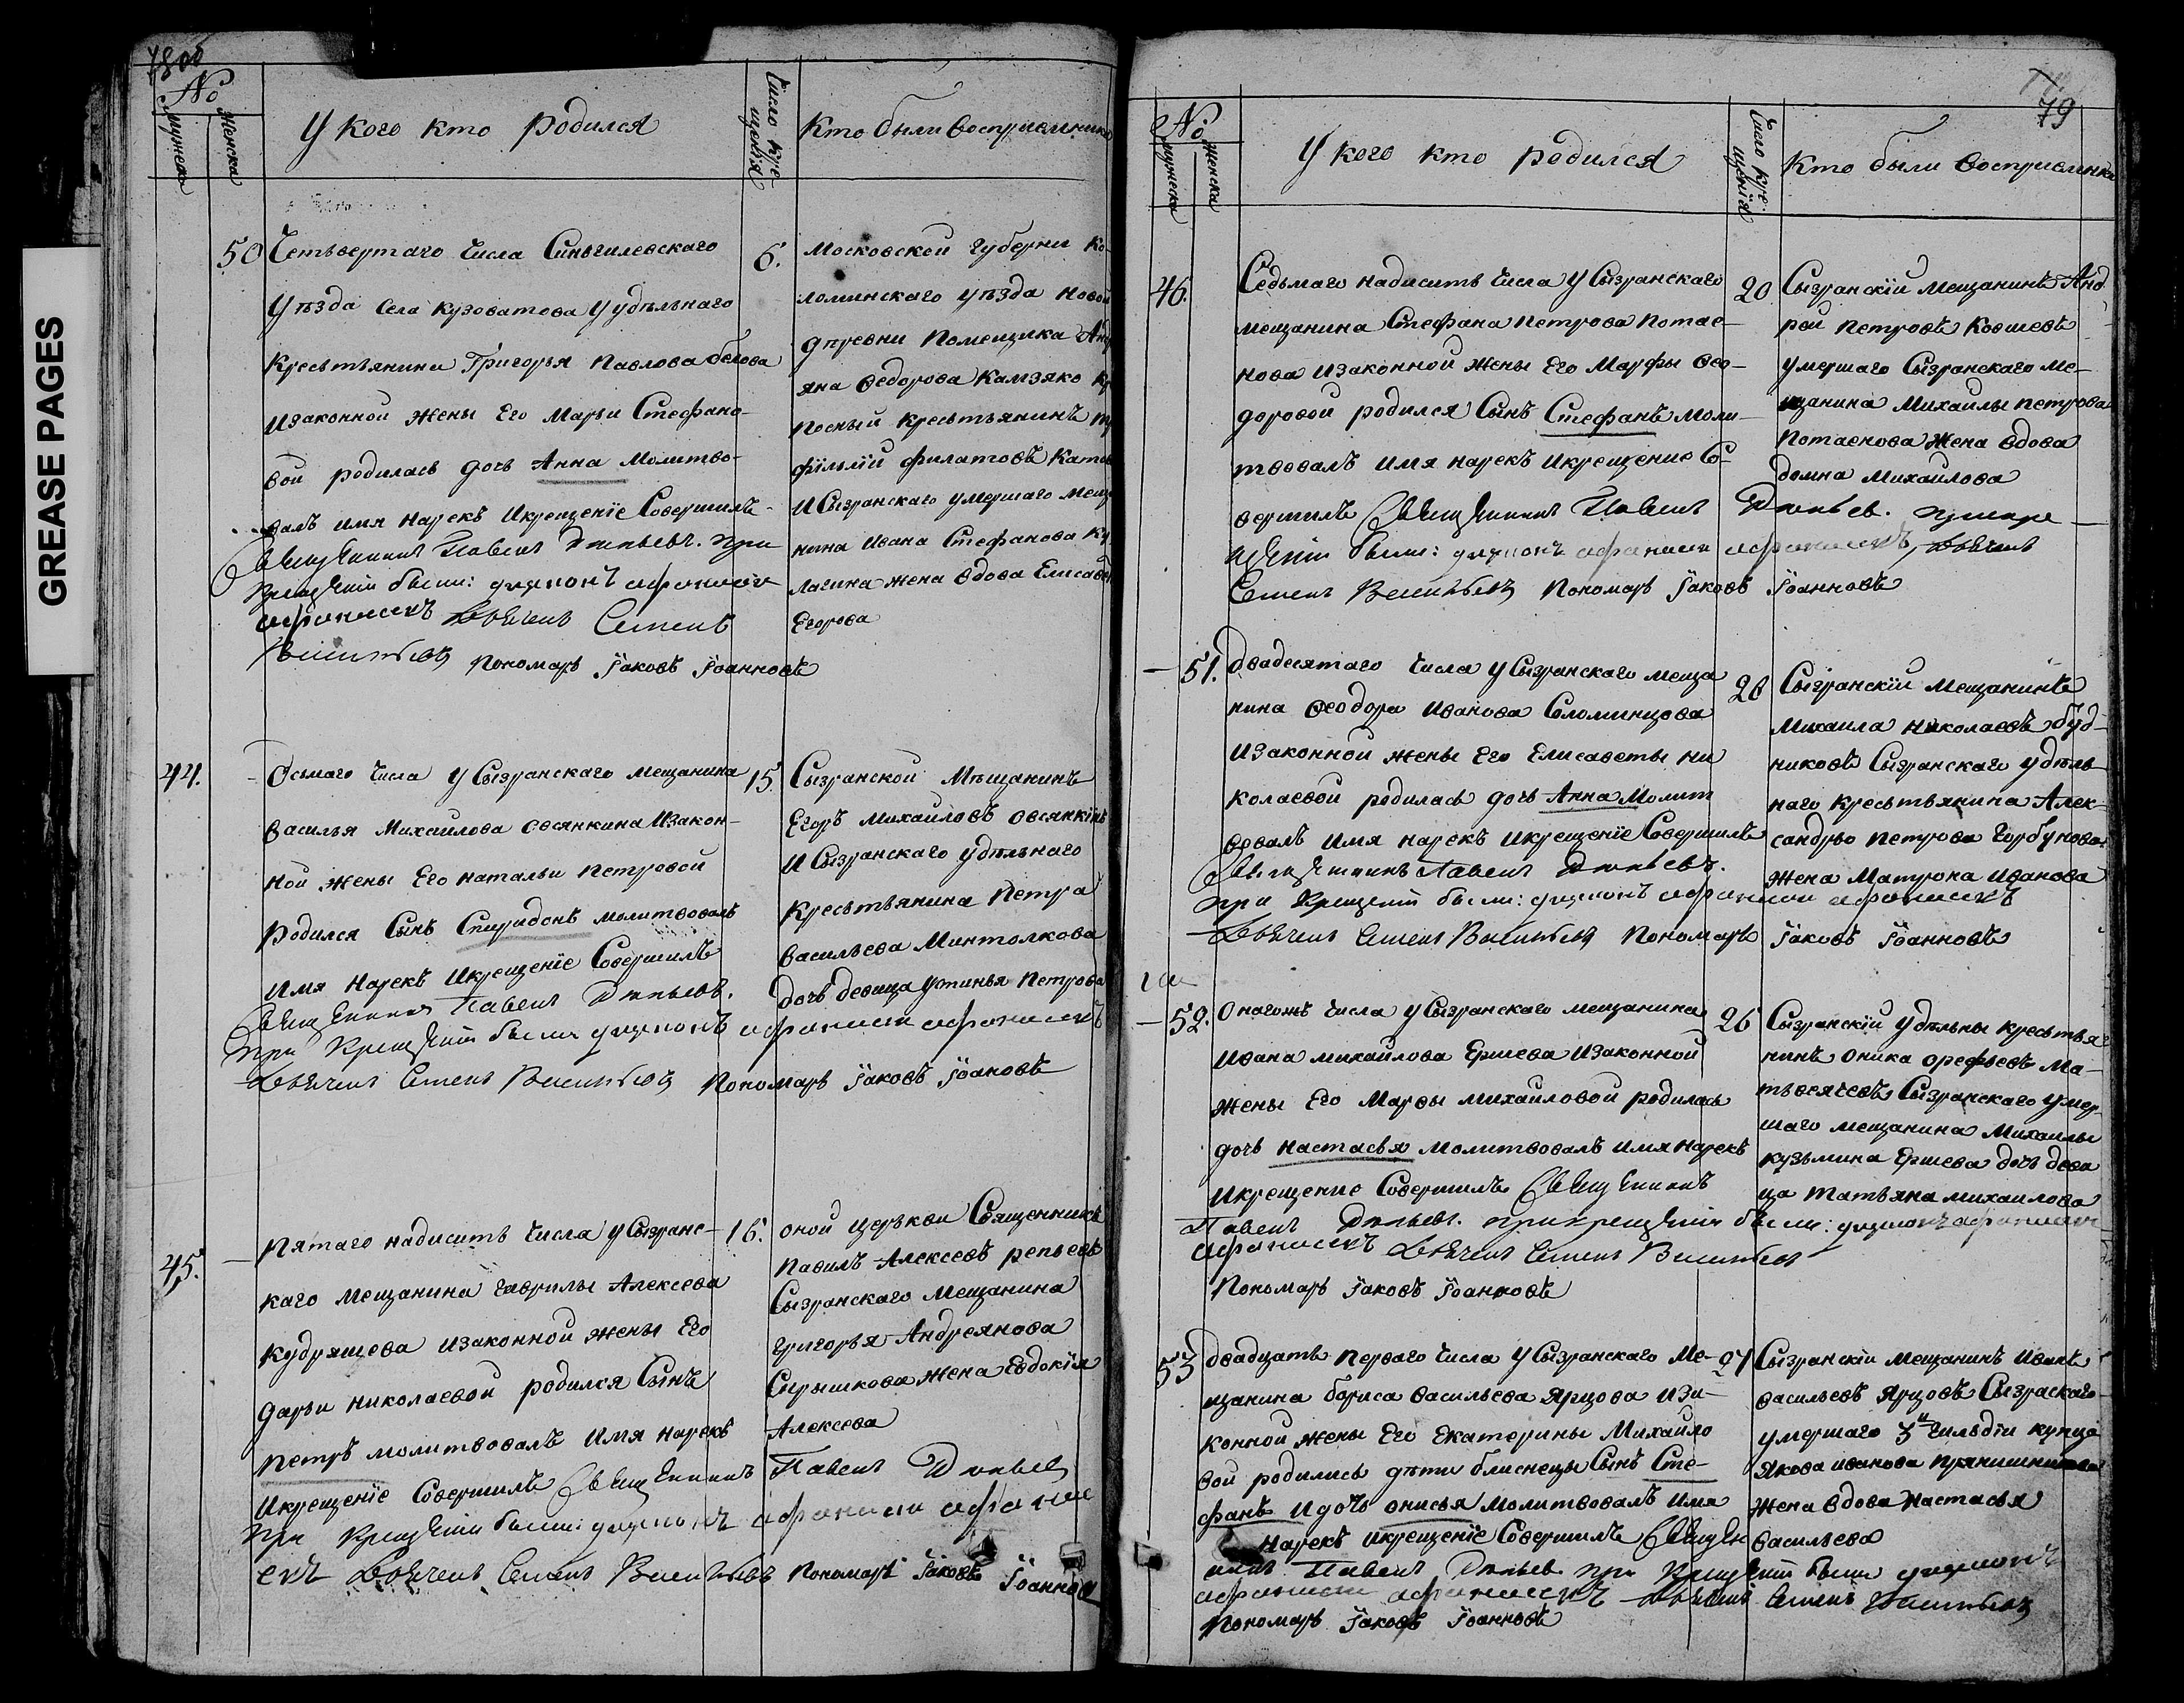 GREASE PAGES
№
мужеска
женска
У кого кто родился
Число кре-
щенія
Кто были восприемники
50
Четвертаго числа Синьгилевскаго
уѣзда села кузоватова у удѣльнаго
крестьянина Григорья павлова белова
изаконной жены его марьи стефано-
вой родилась дочь Анна молитво-
валъ имя нарекъ икрещеніе совершилъ
Священникъ Павелъ при
крещеніи были: диаконъ афанасий
афанасьевъ дьячекъ Семенъ
Васильевъ пономарь Iаковъ Iоанновъ
6.
московской губерни ко-
ломинскаго уѣзда новой
дпревни помещика
яна федорова камзяко
посный крестьянинъ
филатовъ
и сызранскаго умершаго
нина ивана стефанова
лагина жена вдова
Егорова
44.
Осьмаго числа у сызранскаго мещанина
василья михайлова овсянкина изакон-
ной жены его натальи петровой
родился сынъ спиридонъ молитвовалъ
имя нарекъ икрещеніе совершилъ
Священникъ Павелъ
при крещеніи были диаконъ афанасий афанасьевъ
дьячекъ Семенъ Васильевъ пономарь Iаковъ Iоановъ
15.
Сызранской мѣщанинъ
Егоръ михайловъ овсянкинъ
и сызранскаго удѣльнаго
крестьянина петра
васильева минтолкова
дочь девица устинья петрова
45.
пятаго надисить числа у сызранс-
каго мещанина гаврилы алексева
кудряшева изаконной жены его
дарьи николаевой родился сынъ
петръ молитвовалъ имя нарекъ
икрещеніе совершилъ Священникъ Павелъ
при крещеніи были: диаконъ афанасий афанас
евъ дьячекъ Семенъ Васильевъ пономарь Iаковъ Iоаннов
16.
оной церькви священникъ
павилъ алексевъ репьевъ
сызранскаго мещанина
григорья андреянова
жена евдокія
алексева
79
№
мужеска
женска
У кого кто родился
Число кре-
щенія
Кто были восприемники
46.
Седьмаго надисить числа у сызранскаго
мещанина стефана петрова потае-
нова изаконной жены его марфы фео-
доровой родился сынъ стефанъ моли-
твовалъ имя нарекъ икрещение со-
вершилъ Священникъ Павелъ прикре-
щеніи были: диаконъ афанасий афанасьевъ, дьячекъ
Семенъ Васильевъ пономарь Iаковъ Iоанновъ
20
Сызранскій мещанинъ анд-
рей петровъ ковшевъ
умершаго сызранскаго ме-
щанина михаилы петрова
потаенова жена вдова
домна михайлова
51.
двадесятаго числа у сызранскаго меща
нина феодора иванова соломинцова
изаконной жены его елисаветы ни
колаевой родилась дочь анна молит
вовалъ имя нарекъ икрещеніе совершилъ
Священникъ Павелъ
при крещеніи были: диаконъ афанасий афанасьевъ
дьячекъ Семенъ Васильевъ пономарь Iаковъ Iоанновъ
20
Сызранскій мещанинъ
михаила николаевъ буд-
никовъ сызранскаго удѣль
наго крестьянина алек-
сандро петрова горбунова
жена матрона иванова
52.
Онагожъ числа у сызранскаго мещанина
ивана михайлова ершева изаконной
жены его марфы михайловой родилась
дочь настасья молитвовалъ имя нарекъ
икрещение совершилъ Священникъ
Павелъ прикрещеніи были: диаконъ афанасий
афанасьевъ дьячекъ Семенъ Васильевъ
пономарь Iаковъ Iоанновъ
26
Сызранскій удѣльны крестья-
нинъ оника орефьевъ ма-
твсячевъ сызранскаго умер-
шаго мещанина михаилы
кузьмина ершева дочь деви
ца татьяна михаилова
53
двадцать перваго числа у сызранскаго ме-
щанина бориса васильева ярцова иза-
конной жены его екатерины михайло
вой родились дѣти близнецы сынъ сте-
фанъ идочь онисья молитвовалъ имя
нарекъ икрещеніе совершилъ Священ
никъ Павелъ при крещеніи были диаконъ
афанасий афанасьевъ дьячекъ Семенъ Васильевъ
пономарь Iаковъ Iоанновъ
27
Сызранскій мещанинъ иванъ
васильевъ ярцовъ сызраскаго
умершаго 3й гильдіи купца
якова иванова прянишникова
жена вдова настасья
васильева